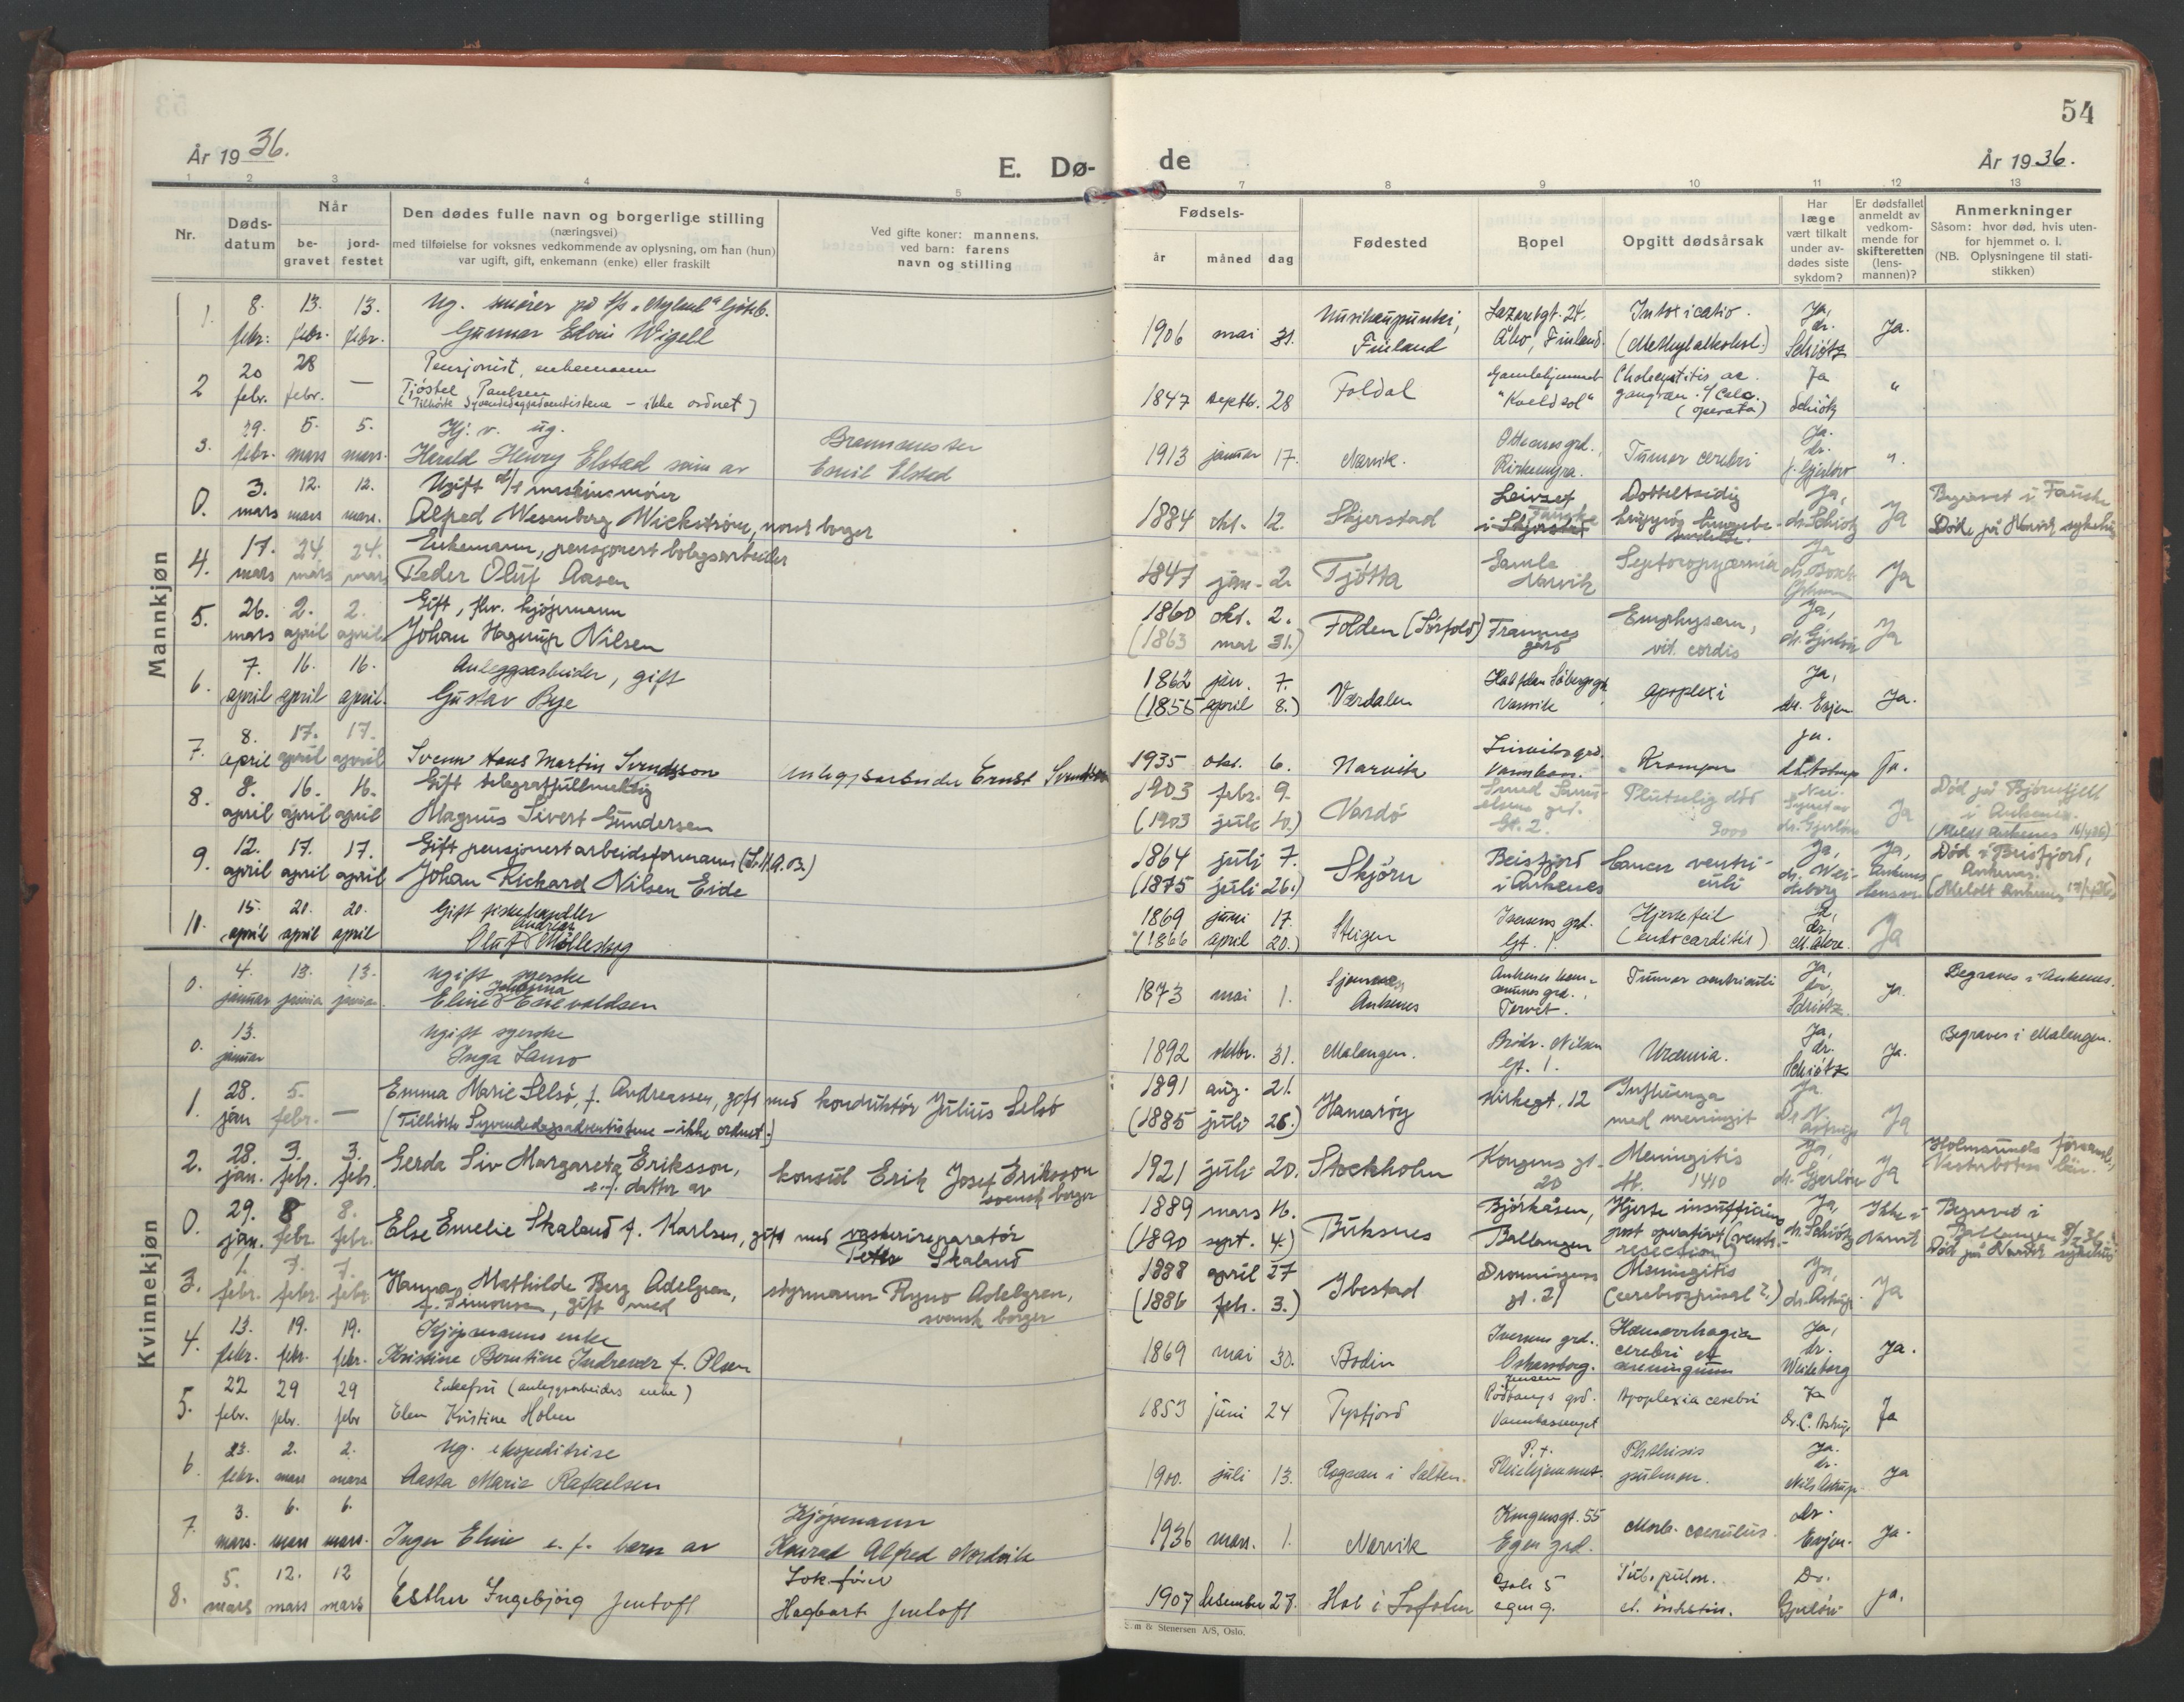 År 1936.
E. Dø-
1 2 3 4 5
Nr.
Døds-
datum
Når
be-
gravet
jord-
festet
Den dødes fulle navn og borgerlige stilling
(næringsvei)
med tilføielse for voksnes vedkommende av oplysning, om han (hun)
var ugift, gift, enkemann (enke) eller fraskilt
Ved gifte koner: mannens,
ved barn: farens
navn og stilling
Mannkjøn
1. 8. febr. 13. febr. 13. febr.
Ug. smører på
Gunnar Edvin Wigell
2 20 febr. 28 febr. —
Pensjonist, enkemann
Tjöstel Paulsen
(Tilhörte Syvendedagsadventistene – ikke ordnet)
3. 29. febr. 5. mars 5. mars.
Hj. v. ug.
Harald Henry Elstad sönn av
Brannmester
Emil Elstad
0. 3. mars 12. mars 12. mars.
Ugift maskinsmører
Alfred Wesenberg Wickström, norsk borger
4. 17. mars 24. mars 24. mars
Enkemann, pensjonert bolagsarbeider
Peder Oluf Aasen
5. 26. mars 2. april 2. april
Gift, fhv. kjöpmann
Johan Hagerup Nilsen
6. 7. april 16. april 16. april.
Anleggsarbeider, gift
Gustav Bye
7. 8. april 17. april 17. april
Svenn Hans Martin Svendsson
Anleggsarbeider Ernst Svendsson
8. 8. april 16. april 16. april
Gift telegraffullmektig
Magnus Sivert Gundersen
9. 12. april 17. april 17. april
Gift pensjonert arbeidsformann
Johan Rickard Nilsen Eide
10. 15. april 20. april 20. april
Gift fiskehandler
Andreas
Oluf Mölleskog
Kvinnekjøn
0. 4. januar 13. januar 13. januar
Ugift syerske
Johanna
Eline Enevoldsen
0. 13. januar
Ugift syerske
Inga Lamo
1. 28. jan 5. febr. —
Emma Marie Selsö, f. Andreassen, gift med konduktör Julius Selsö
(Tilhörte Syvendedagsadventistene – ikke ordnet.)
2. 28. jan. 3. febr. 3. febr.
Gerda Siv Margareta Eriksson,
e.f. datter av
konsul Erik Josef Eriksson
svensk borger
0. 29. jan. 8 febr. 8. febr.
Else Emelie Skaland f. Karlsen, gift med vaskerireparatör
Petter Skaland
3. 1. febr. 7. febr. 7. febr.
Hanna Mathilde Berg Adelgren,
f. Simonsen, gift med
styrmann Ryno Adelgren,
svensk borger
4. 13. febr. 19. febr. 19. febr.
Kjöpmanns enke
Kristine Berntine Indrevær f. Olsen
5. 22 febr. 29 febr. 29 febr
Enkefru (anleggsarbeiders enke)
Elen Kristine Holen
6 23. febr. 2. mars 2. mars
Ug. ekspeditrise
Aasta Marie Rafaelsen
7. 3. mars. 6. mars 6. mars.
Inger Eline e.f. barn av
Kjöpmann
Konrad Alfred Nordvik
8. 5. mars 12. mars 12 mars
Esther Ingebjörg Jentoft
Lok.förer
Hagbart Jentoft
54
de
År 1936.
7 8 9 10 11 12 13
Fødsels-
år måned dag
Fødested
Bopel
Opgitt dødsårsak
Har
læge
vært tilkalt
under av-
dødes siste
sykdom?
Er dødsfallet
anmeldt av
vedkom-
mende for
skifteretten
(lens-
mannen)?
Anmerkninger
Såsom: hvor død, hvis uten-
for hjemmet o. l.
(NB. Oplysningene til stati-
stikken)
1906 mai 31.
Finland
Lazaretgt. 24.
Åbo, Finland.
Intoxicatio.
(Methylalkohol.)
Ja, dr. Schiötz
Ja.
1847 septbr. 28
Foldal
Gamlehjemmet
"Kveldsol"
Cholecystitis ac.
gangræn.
(operata)
Ja
Schiötz
"
1913 januar 17.
Narvik.
Tumor cerebri
Ja. dr.
".
1884 okt. 12.
Skjerstad
Leivset
Fauske
i Skjerstad
Dobbeltsidig
krupøs lungebe-
tendelse.
Ja, dr. Schiötz
Ja
Begravet i Fauske
Döde på Narvik sykehus
1847 jan. 2.
Tjötta
Gamle
Narvik
Septicopyæmia
Ja
Ja
1860 okt. 2.
(1863 mar 31.)
Folden (Sörfold)
Framnes
gård
Emphysem,
vit. cordis
Ja, dr. Gjerlöv
Ja
1862 jan. 7.
(1855 april 8.)
Værdalen
Narvik
apoplexi
Ja, dr. Evjen
Ja.
1935 okt. 6.
Narvik
Kramper
ja.
Ja.
1903 febr. 9.
(1903 juli 10.)
Vardö
Gt. 2.
Plutselig död
9000
Nei.
dr. Gjerlöv
Ja
Död på Björnfjell
i Ankenes.
1864 juli 7.
(1875 juli 26.)
Skjörn
Beisfjord
i Ankenes
Cancer ventri-
culi
Ja, dr. Weideborg
Ja, Ankenes
Död i Beisfjord,
Ankenes.
1869 juni 17.
(1866 april 20.)
Steigen
Iversens grd.
Gt. 1.
Hjertefeil
(endocarditis)
Ja
1873 mai 1.
Ankenes
Tumor ventriculi
Ja, dr. Schiötz.
Ja.
Begraves i Ankenes.
1892 oktbr. 31.
Malangen.
Brödr. Nilsen
Gt. 1.
Uræmia.
Ja, dr. Schiötz
Ja.
Begraves i Malangen.
1891 aug. 21.
(1885 juli 26.)
Hamaröy
Kirkegt. 12
Influenza
med meningit
Ja. Dr N. Astrup
Ja
1921 juli 20.
Stockholm
Kongens gt.
20
Meningitis
1410
Ja, dr. Gjerlöv
Ja
Holmsunds församl.,
Västerbotten län.
1889 mars 16.
(1890 sept. 4.)
Buksnes
Björkåsen,
Ballangen
Hjerte insufficiens
post operativt (ventr.-
resection)
Ja, dr. Schiötz
Ikke i
Narvik
Begravet i
Ballangen 8/2 36.
Död på Narvik sykehus
1888 april 27
(1886 feb. 3.)
Ibestad
Dronningens
gt. 21
Meningitis
(cerebrospinal?.)
Ja, dr. Astrup.
Ja
1869 mai 30.
Bodin
Iversens grd.
Oskarsborg.
Hæmorrhagia
cerebri et
meningum
Ja, dr. Weideborg
Ja.
1853 juni 24
Tysfjord
Jensen
Rödbergs grd.
Vannbassenget
Apoplexia cerebri
Ja
Dr. C. Astrup
Ja
1900. juli 13.
Rognan i Salten.
P.t.
Pleiehjemmet.
Phthisis
pulmon.
Ja. dr. Nils Astrup.
Ja
1936 mars. 1.
Narvik
Kongensgt. 55
Egen grd.
Morb. coerulus.
Dr. Evjen.
Ja.
1907 desember 27.
Hol i Lofoten
egen g.
Tub. pulm.
et. intestin.
Dr. Gjerlöv
ja.
& Stenersen A/S, Oslo.